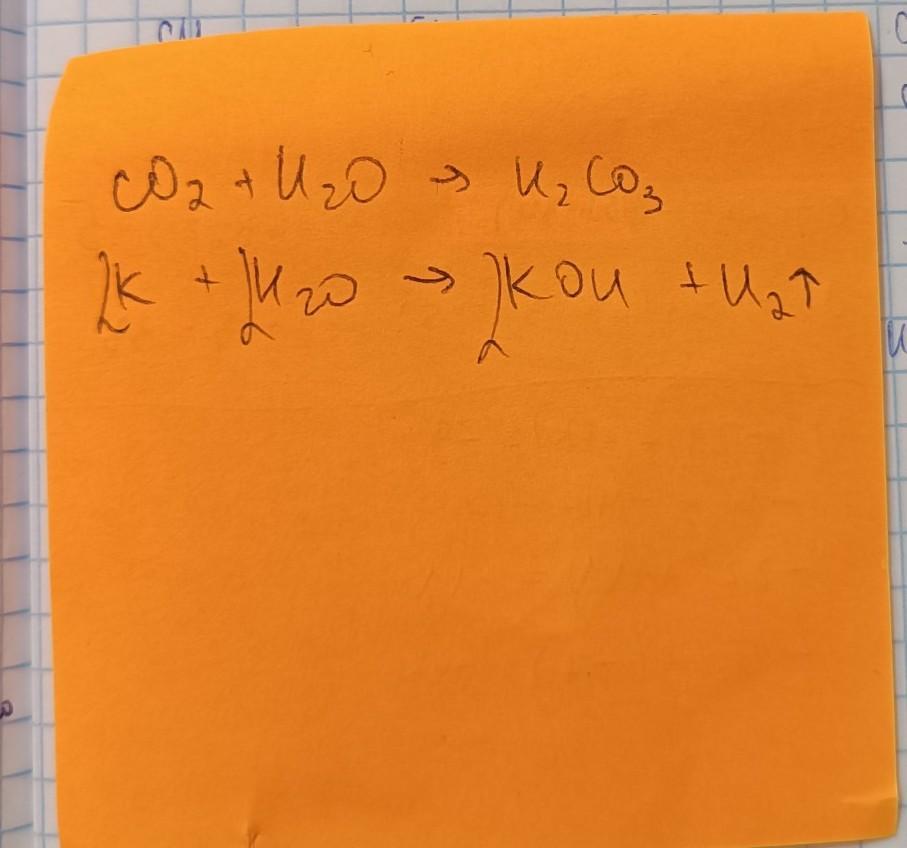 CO₂ + H₂O → H₂CO₃
2K + 2H₂O → 2KOH + H₂↑